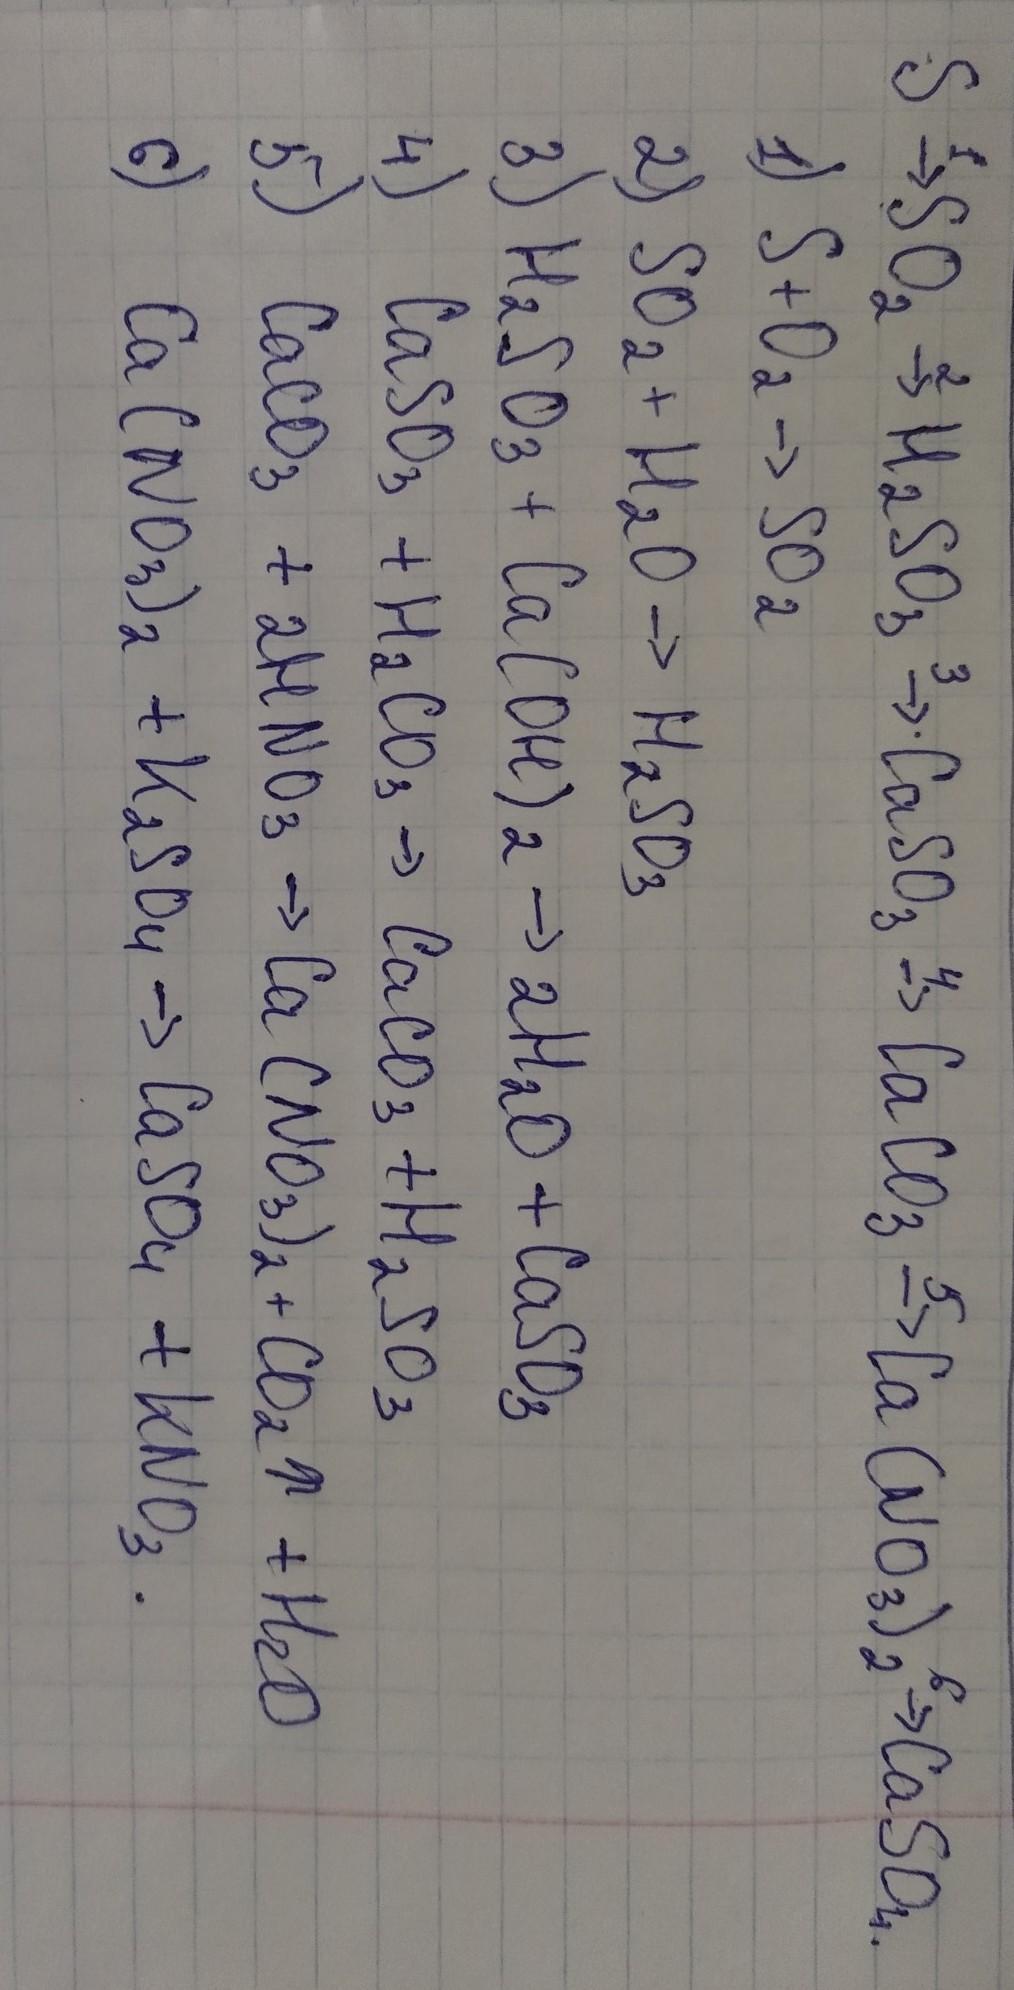 S →¹ SO₂ →² H₂SO₃ →³ CaSO₃ →⁴ CaCO₃ →⁵ Ca(NO₃)₂ →⁶ CaSO₄.
1) S + O₂ → SO₂
2) SO₂ + H₂O → H₂SO₃
3) H₂SO₃ + Ca(OH)₂ → 2H₂O + CaSO₃
4) CaSO₃ + H₂CO₃ → CaCO₃ + H₂SO₃
5) CaCO₃ + 2HNO₃ → Ca(NO₃)₂ + CO₂↑ + H₂O
6) Ca(NO₃)₂ + K₂SO₄ → CaSO₄ + KNO₃.